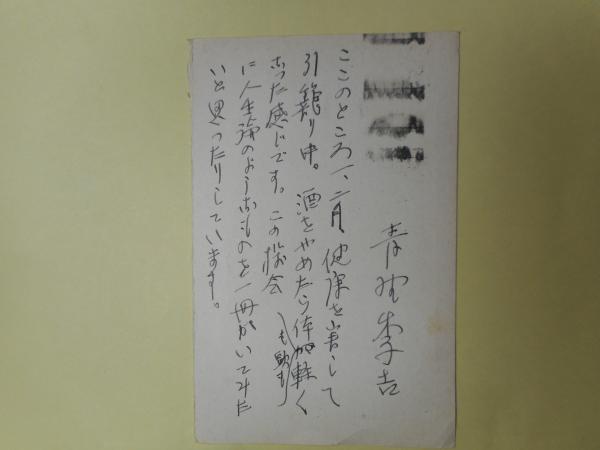 青野季吉
ここのところ一、二月、健康を害して
引籠り中。酒をやめたら体も頭も軽く
なった感じです。この機会
に人生論のようなものを一冊かいてみた
いと思ったりしています。